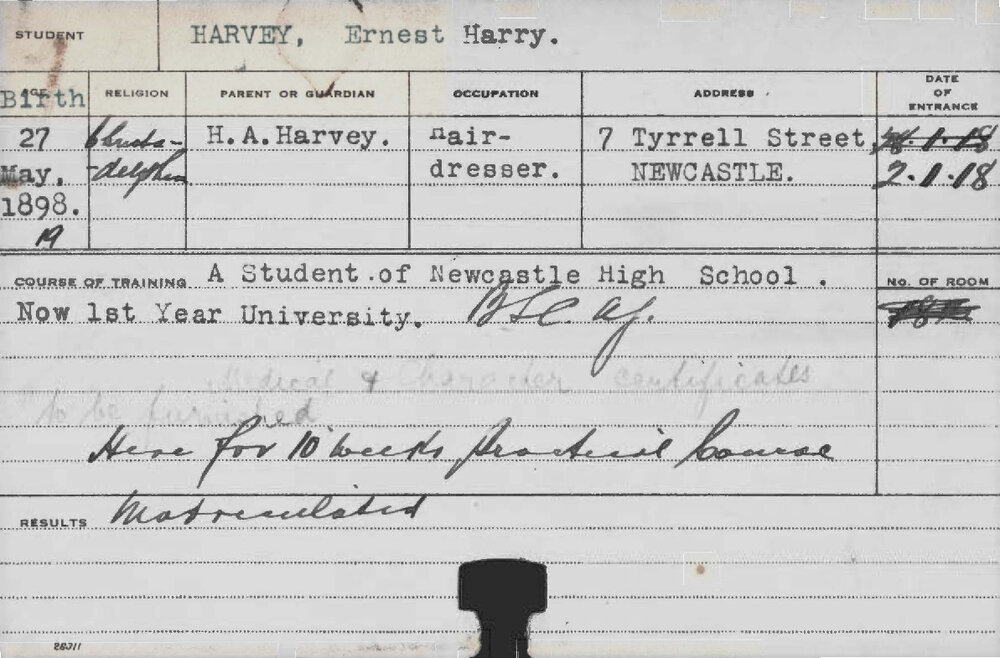 STUDENT HARVEY, Ernest Harry.
Birth RELIGION PARENT OR GUARDIAN OCCUPATION ADDRESS DATE OF ENTRANCE
27 Christa- H.A.Harvey. Hair- 7 Tyrrell Street
May, -delphian dresser. NEWCASTLE. 2.1.18
1898.
19
COURSE OF TRAINING A Student of Newcastle High School . NO. OF ROOM
Now 1st Year University. BSc. Ag.
Medical & Character certificates
to be furnished
Here for 10 weeks practical Course
RESULTS Matriculated